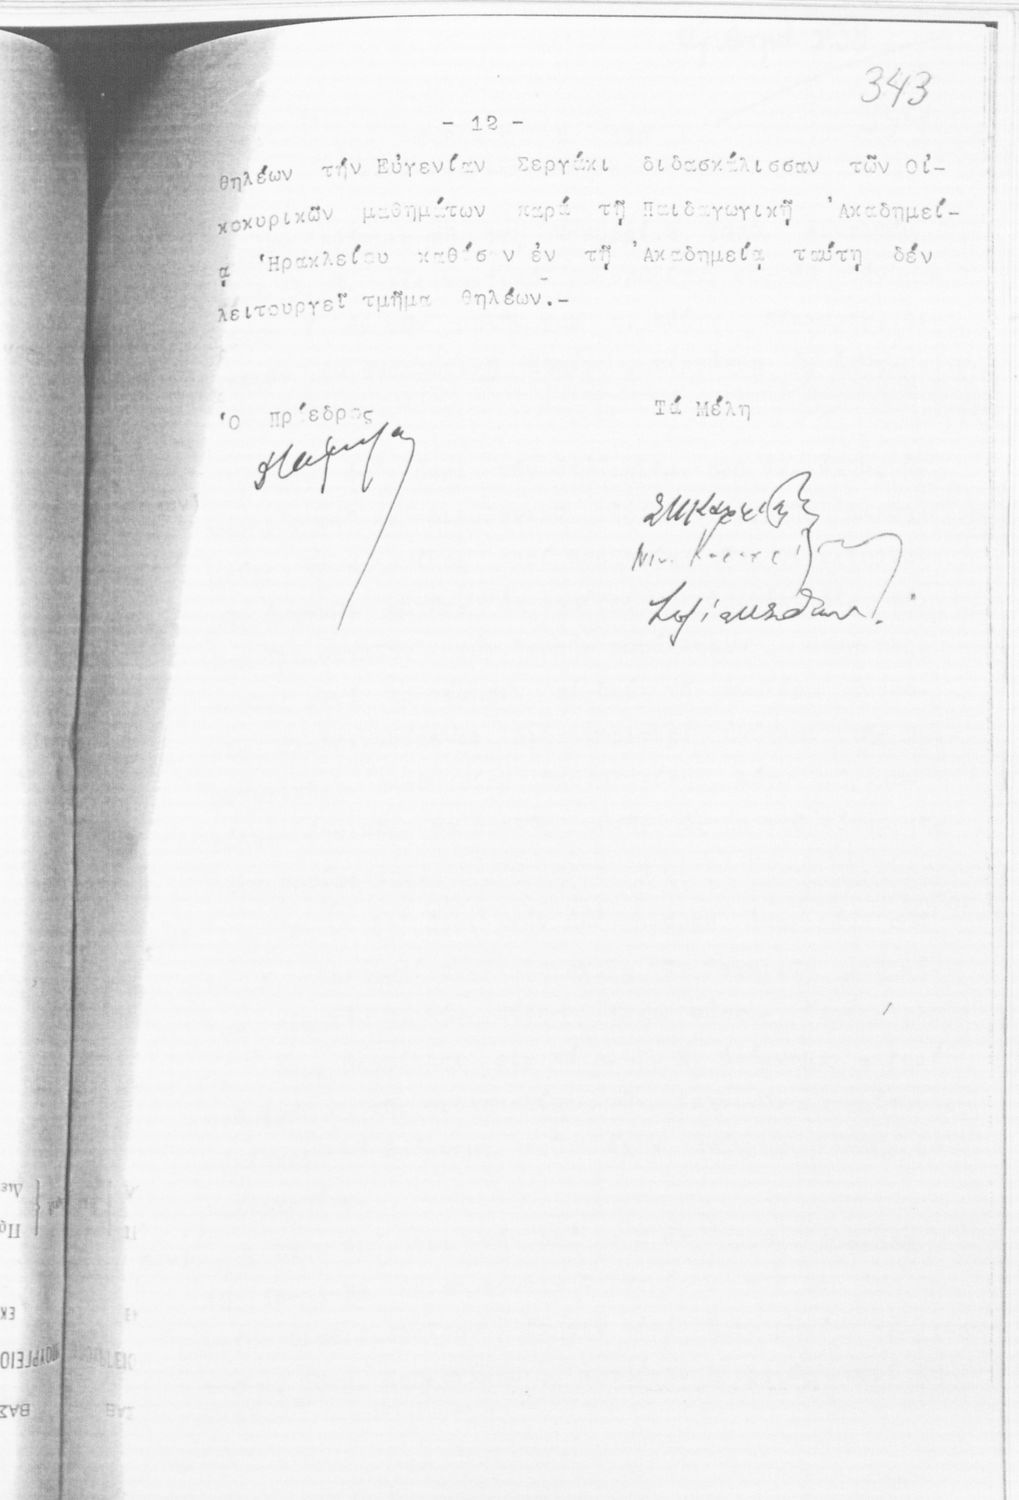 343
- 12 -
θηλέων τήν Εὐγενίαν Σεργάκι διδασκάλισσαν τῶν Οἰ-
κοκυρικῶν μαθημάτων παρά τῇ Παιδαγωγικῇ Ἀκαδημεί-
ᾳ Ἡρακλείου καθόσον ἐν τῇ Ἀκαδημείᾳ ταύτῃ δέν
λειτουργεῖ τμῆμα θηλέων.-
Ὁ Πρόεδρος
Τά Μέλη